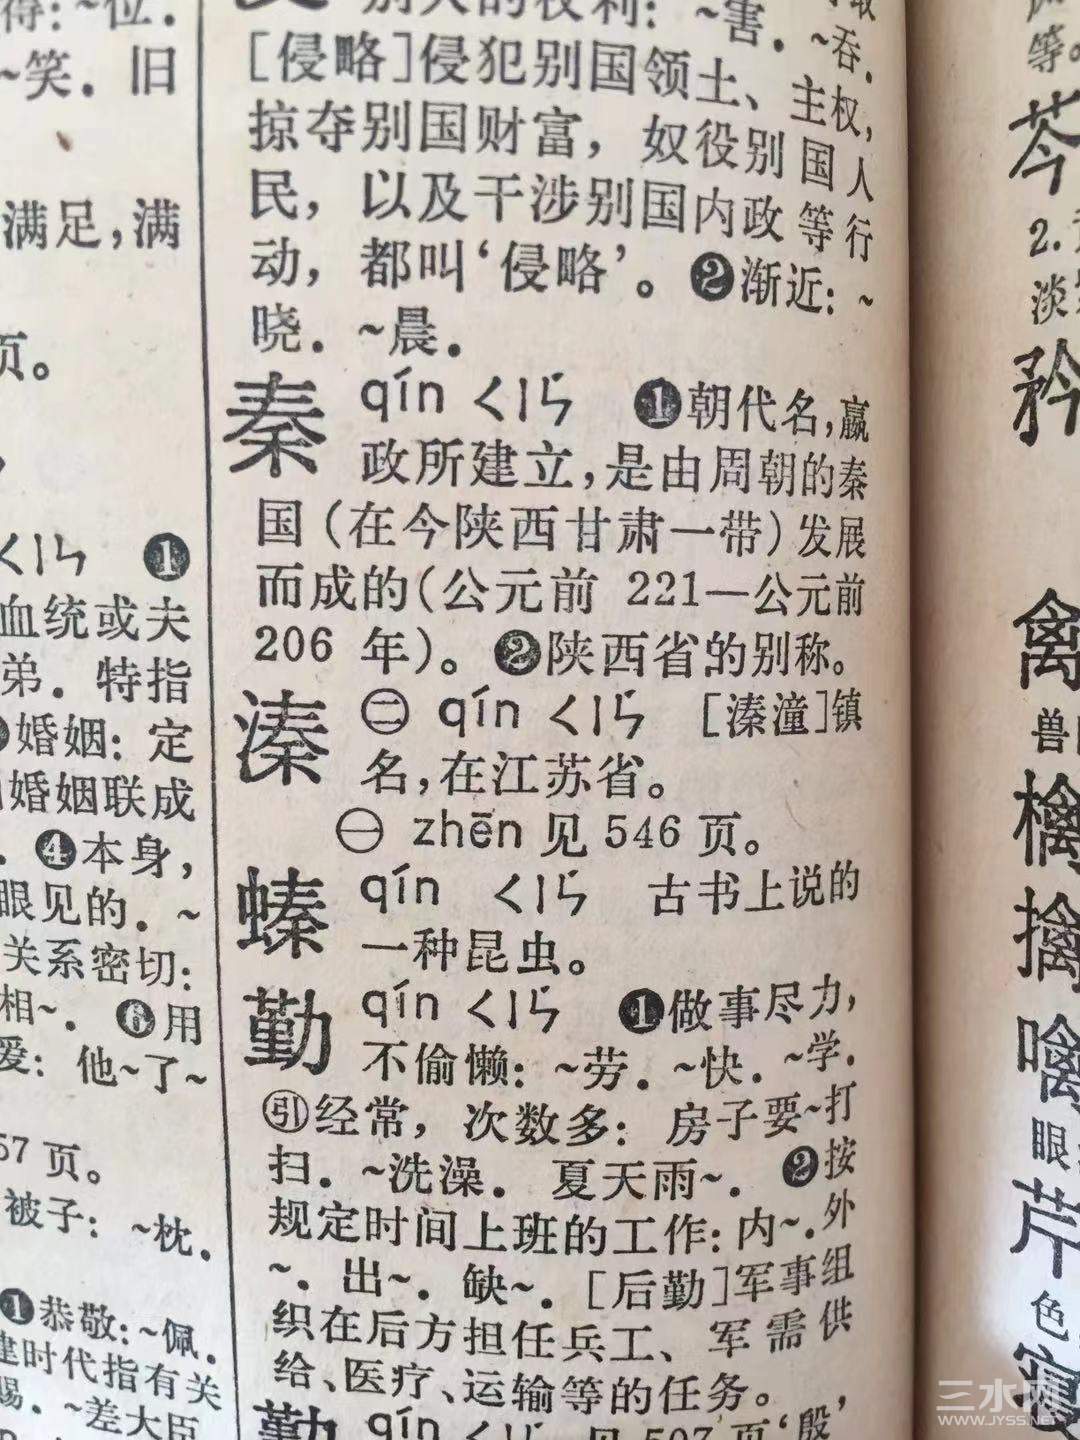 得：~位.
~笑. 旧
满足,满
页。
ㄑㄧㄣ ❶
血统或夫
弟. 特指
婚姻：定
婚姻联成
. ❹本身,
眼见的. ~
关系密切：
相~. ❻用
爱：他~了~
57 页。
被子：~枕.
❶恭敬：~佩.
建时代指有关
赐. ~差大臣
别人的权利：~害. ~吞.
[侵略]侵犯别国领土、主权,
掠夺别国财富, 奴役别国人
民, 以及干涉别国内政等行
动, 都叫‘侵略’。❷渐近：~
晓. ~晨.
秦 qín ㄑㄧㄣˊ ❶朝代名,嬴
政所建立,是由周朝的秦
国(在今陕西甘肃一带)发展
而成的(公元前 221—公元前
206 年)。❷陕西省的别称。
溱 ㊁ qín ㄑㄧㄣˊ [溱潼]镇
名,在江苏省。
㊀ zhēn 见 546 页。
螓 qín ㄑㄧㄣˊ 古书上说的
一种昆虫。
勤 qín ㄑㄧㄣˊ ❶做事尽力,
不偷懒：~劳. ~快. ~学.
㊀引经常, 次数多：房子要~打
扫. ~洗澡. 夏天雨~. ❷按
规定时间上班的工作：内~. 外
~. 出~. 缺~. [后勤]军事组
织在后方担任兵工、军需供
给、医疗、运输等的任务。
勤 qín ㄑㄧㄣˊ 见 507 页‘殷’,
等。
芩
2.
淡
矜
禽
兽
檎
擒
噙
眼
芹
色
三水网
WWW.JYSS.NET